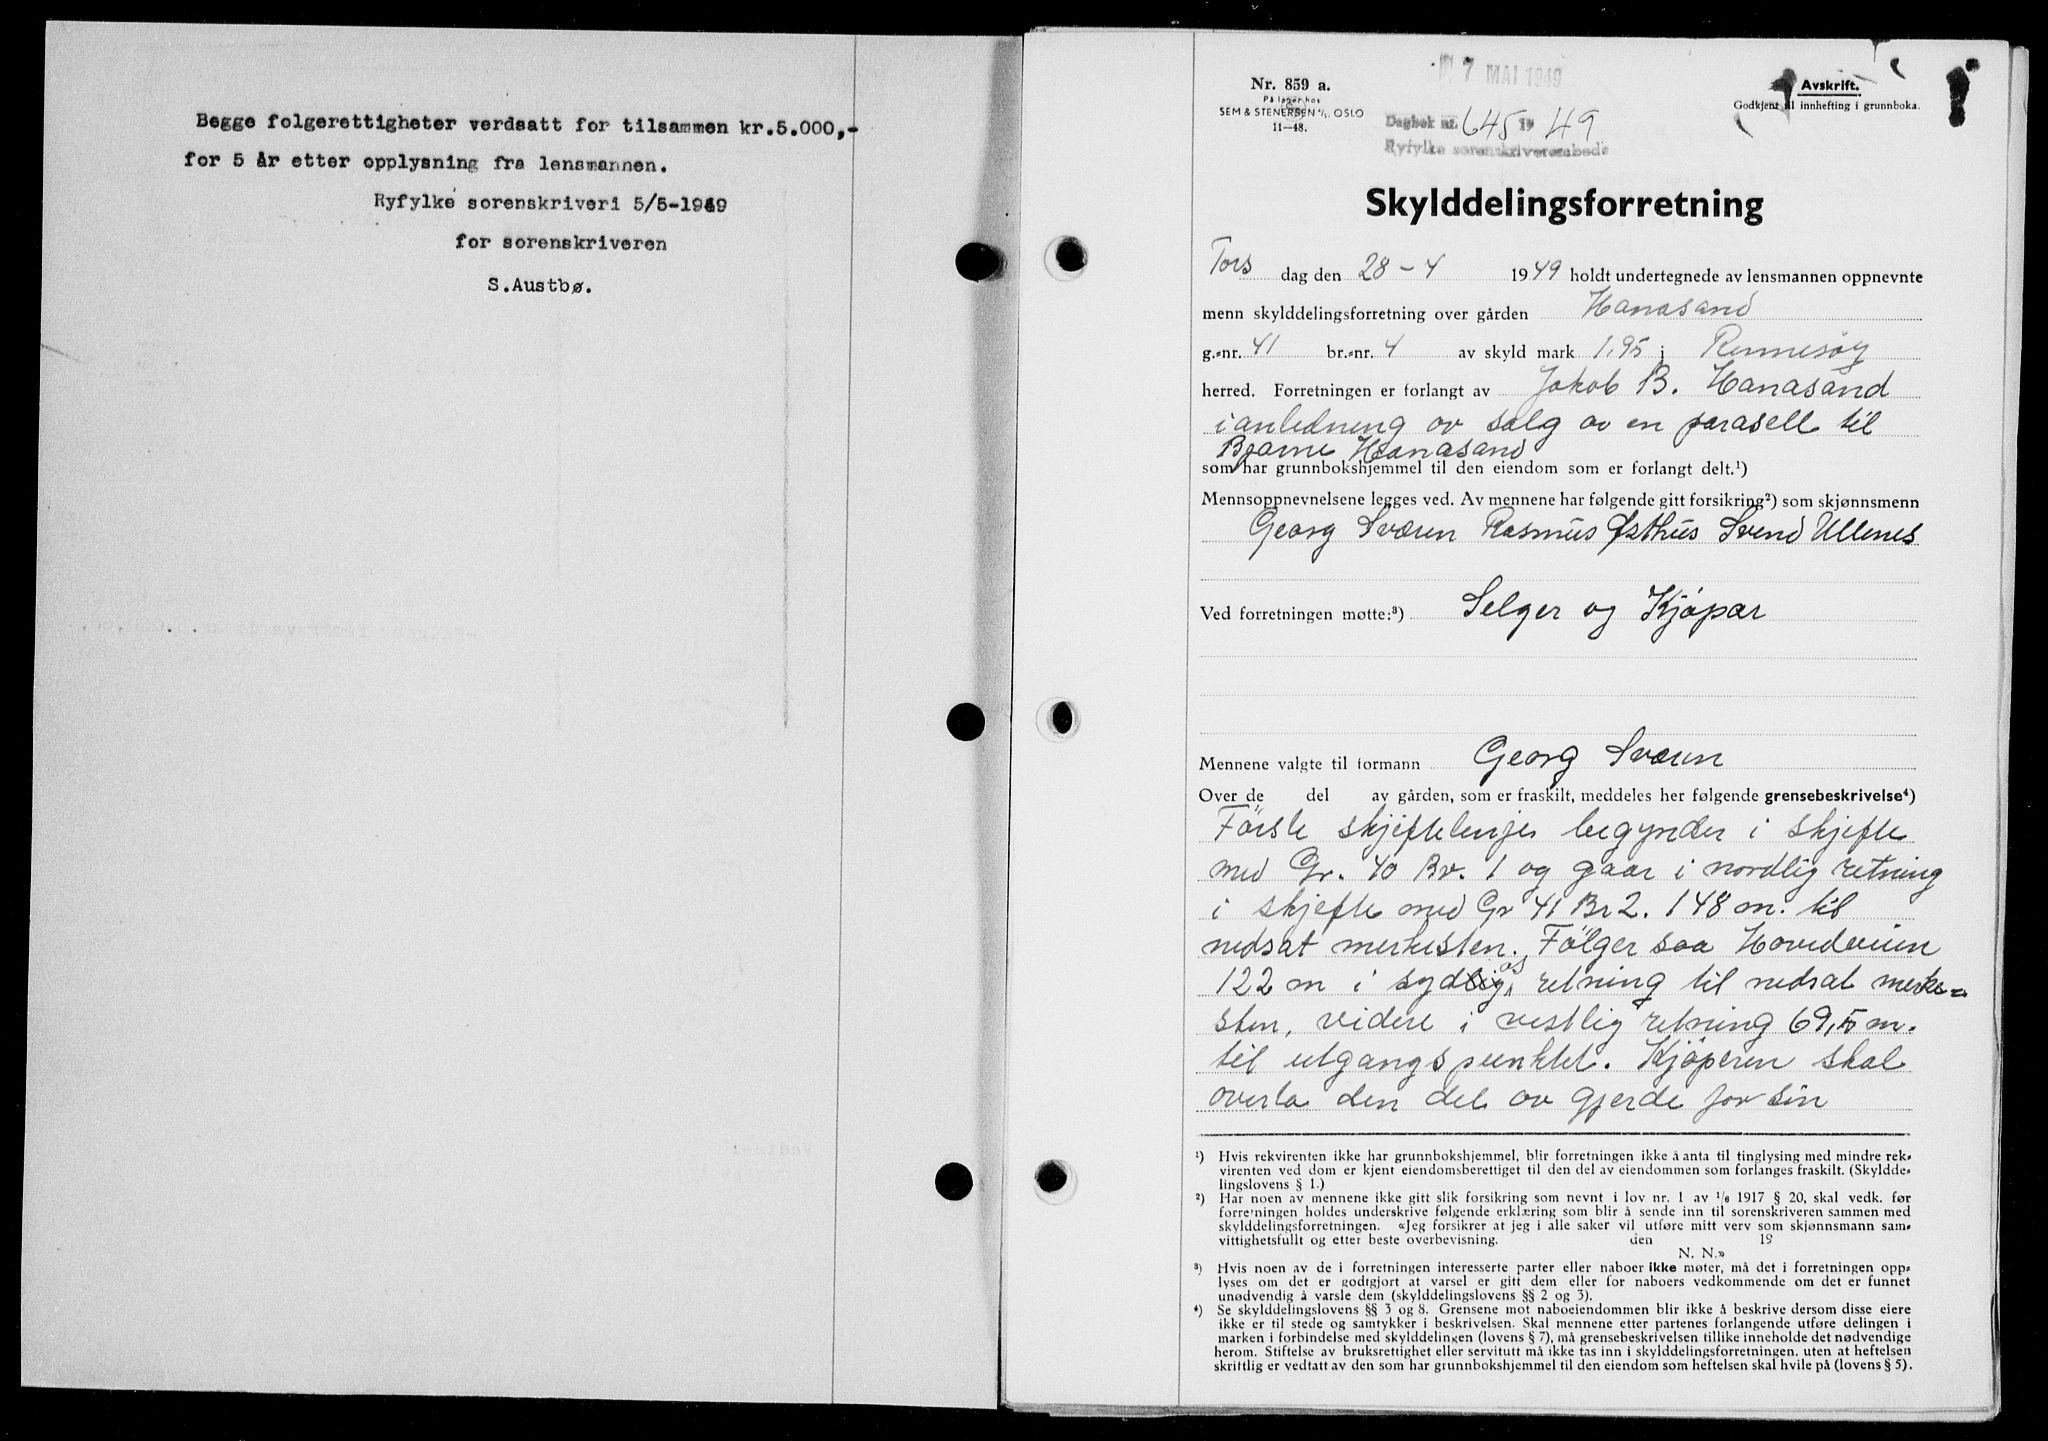 Begge følgerettigheter verdsatt for tilsammen kr.5.000,-
for 5 år etter opplysning fra lensmannen.
Ryfylke sorenskriveri 5/5-1949
for sorenskriveren
S.Austbø.
Nr. 859 a.
På lager hos
SEM & STENERSEN A/S. OSLO
11—48.
7 MAI 1949
Dagbok nr. 645 19 49
Ryfylke sorenskriverembede
Avskrift.
Godkjent til innhefting i grunnboka.
Skylddelingsforretning
Tors dag den 28-4 1949 holdt undertegnede av lensmannen oppnevnte
menn skylddelingsforretning over gården Hanasand
g.-nr. 41 br.-nr. 4 av skyld mark 1,95 i Rennesøy
herred. Forretningen er forlangt av Jakob B. Hanasand
i anledning av salg av en parasell til
Bjarne Hanasand
som har grunnbokshjemmel til den eiendom som er forlangt delt.¹)
Mennsoppnevnelsene legges ved. Av mennene har følgende gitt forsikring²) som skjønnsmenn
Georg Sværen Rasmus Østhus Svend Ullenes
Ved forretningen møtte:³) Selger og Kjöpar
Mennene valgte til formann Georg Sværen
Over de del av gården, som er fraskilt, meddeles her følgende grensebeskrivelse⁴)
Förste skjeftelinje begynder i skjefte
med Gr. 40 Br. 1 og gaar i nordlig retning
i skjefte med Gr 41 Br 2. 148 m. til
nedsat merkesten. Fölger saa Hovedveien
122 m i sydlig retning til nedsat merke=
sten, videre i vestlig retning 69,50 m.
til utgangspunktet. Kjöperen skal
overta den del av gjerde for sin
¹) Hvis rekvirenten ikke har grunnbokshjemmel, blir forretningen ikke å anta til tinglysing med mindre rek-
virenten ved dom er kjent eiendomsberettiget til den del av eiendommen som forlanges fraskilt. (Skyldde-
lingslovens § 1.)
²) Har noen av mennene ikke gitt slik forsikring som nevnt i lov nr. 1 av 1/6 1917 § 20, skal vedk. før
forretningen holdes underskrive følgende erklæring som blir å sende inn til sorenskriveren sammen med
skylddelingsforretningen. «Jeg forsikrer at jeg i alle saker vil utføre mitt verv som skjønnsmann sam-
vittighetsfullt og etter beste overbevisning. den 19
N. N.»
³) Hvis noen av de i forretningen interesserte parter eller naboer ikke møter, må det i forretningen opp-
lyses om det er godtgjort at varsel er gitt dem eller for naboers vedkommende om det er funnet
unødvendig å varsle dem (skylddelingslovens §§ 2 og 3).
⁴) Se skylddelingslovens §§ 3 og 8. Grensene mot naboeiendommen blir ikke å beskrive dersom disse eiere
ikke er til stede og samtykker i beskrivelsen. Skal mennene etter partenes forlangende utføre delingen i
marken i forbindelse med skylddelingen (lovens § 7), må grensebeskrivelsen tillike inneholde det nødvendige
herom. Stiftelse av bruksrettighet eller servitutt må ikke tas inn i skylddelingsforretningen, uten at heftelsen
skriftlig er vedtatt av den som har grunnbokshjemmel til den eiendom som heftelsen skal hvile på (lovens § 5).